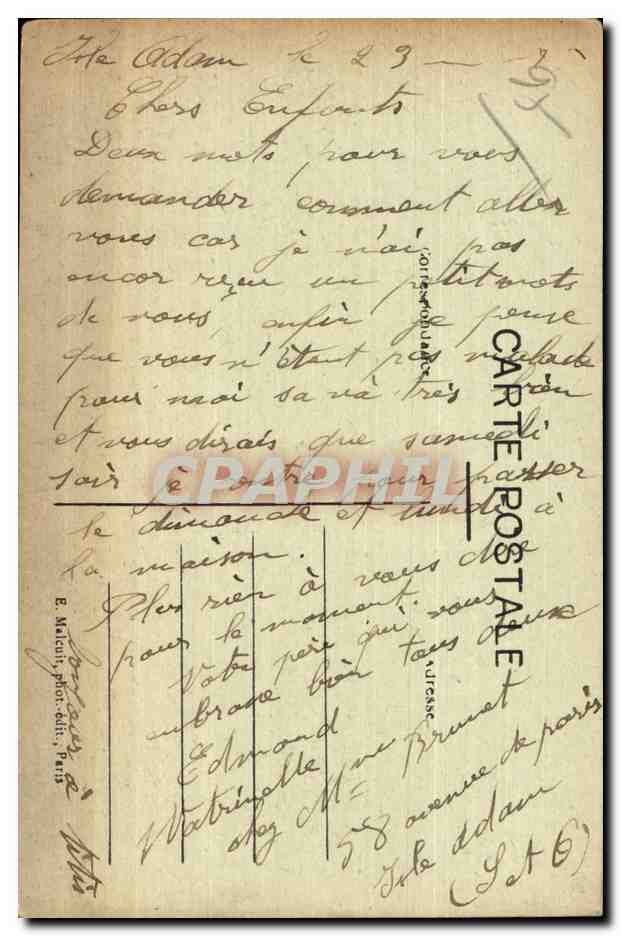 Isle Adam le 23
Chers Enfants
Deux mots pour vous
demander comment aller
vous car je n'ai pas
encor reçu un petit mots
de vous, enfin je pense
que vous n'étant pas malade
pour moi sa va très bien
et vous dirais que samedi
soir je rentre pour passer
le dimanche et lundi à
la maison.
Plus rien à vous dire
pour le moment.
Votre père qui vous
embrasse bien tous deux
Edmond
chez Mme Brunet
58 avenue de paris
Isle Adam
(S et O)
CARTE POSTALE
Correspondance
Adresse
E. Malcuit, phot.-édit., Paris
CPAPHIL